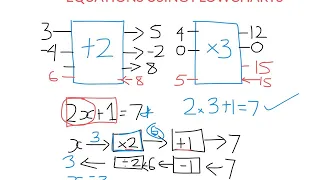 EQUATIONS USING FLOWCHARTS
3 +2 5 4 ×3 12
-4 -2 0 0
6 8 15
6 8 5 15
2x+1=7 2×3+1=7
x 3 ×2 6 +1 7
3 ÷2 6 -1 7
x=3